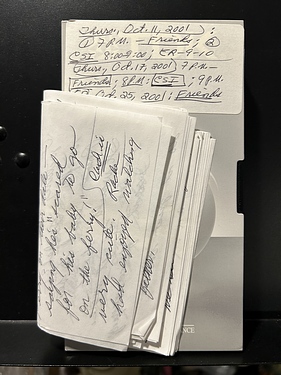 Thurs., Oct. 11, 2001) :
① 7 P.M. — Friends; ②
CSI 8:00-9:00; ER-9-10
Thurs., Oct. 17, 2001) 7 P.M. —
Friends; 8 P.M.: CSI; 9 P.M.
Oct. 25, 2001; Friends
saying he's "scared
for his baby to go
on the ferry!" Cad is
very cute.
had enjoyed watching
James.
NCE